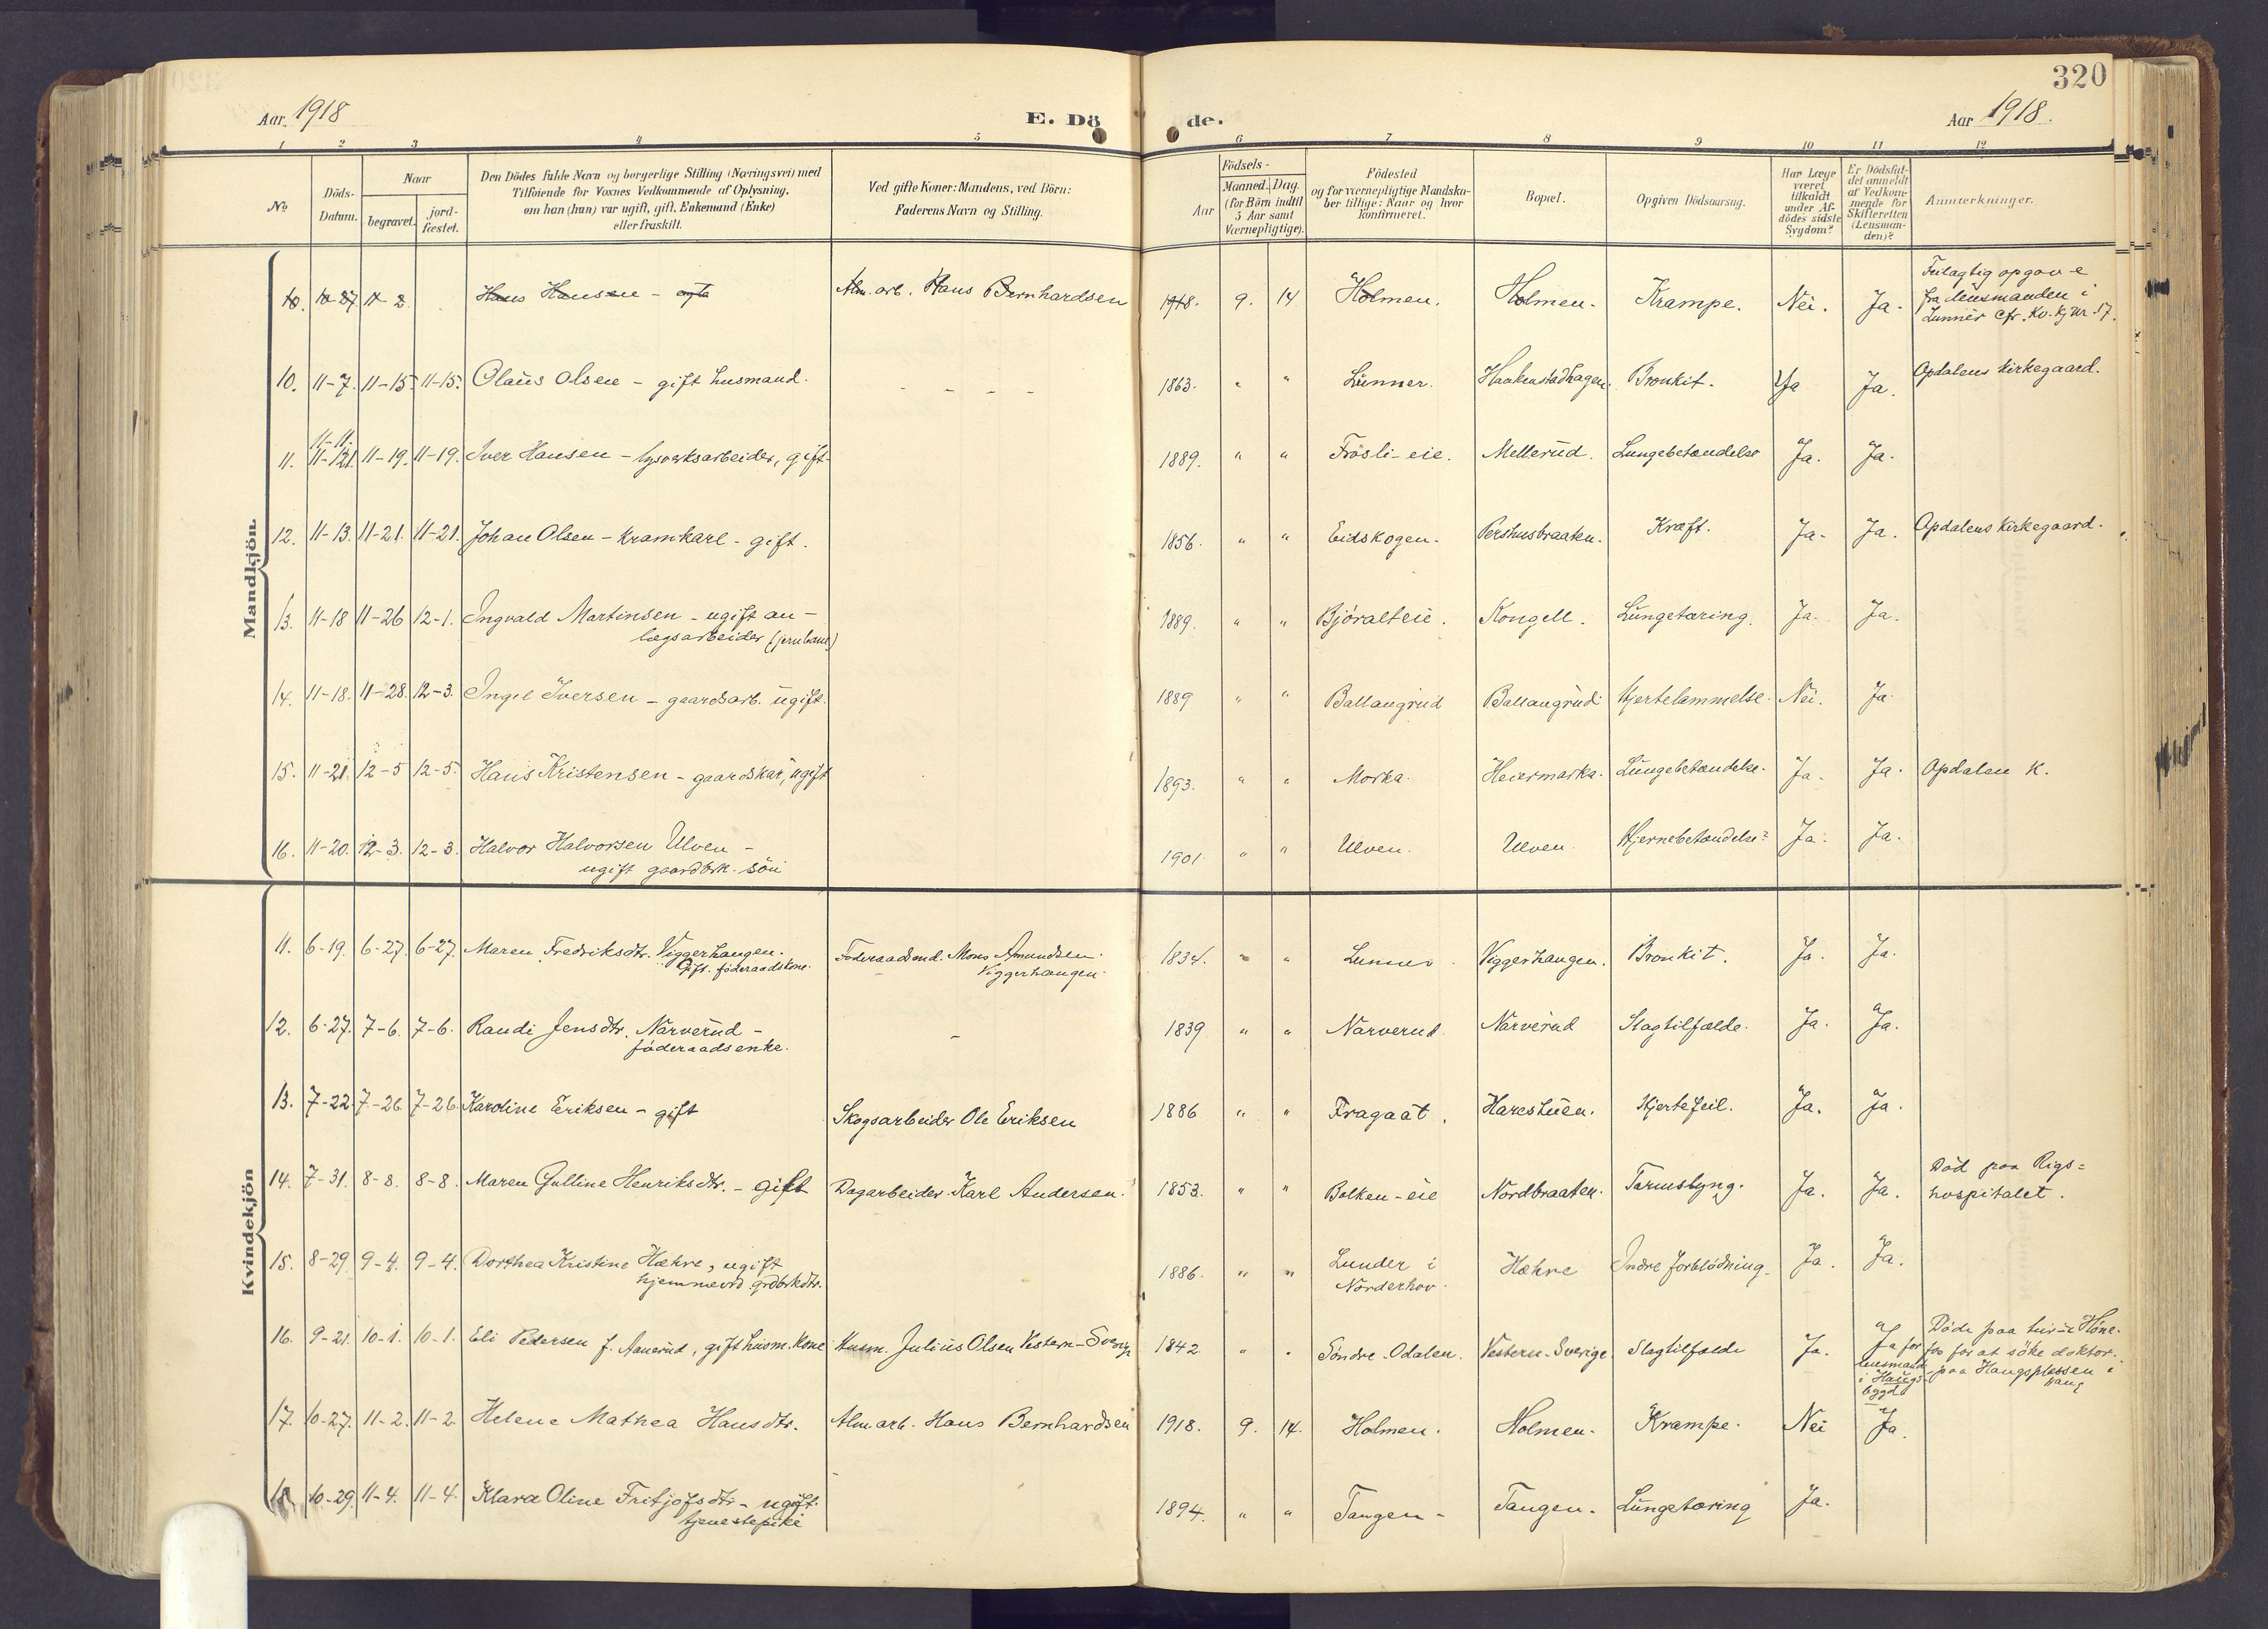 320
Aar 1918
E. Dö de.
Aar 1918.
1 2 3 4 5 6 7 8 9 10 11 12
No
Döds-
Datum.
Naar
begravet.
jord-
fæstet.
Den Dödes fulde Navn og borgerlige Stilling (Næringsvei) med
Tilföiende for Voxnes Vedkommende af Oplysning,
om han (hun) var ugift, gift, Enkemand (Enke)
eller fraskilt.
Ved gifte Koner: Mandens, ved Börn:
Faderens Navn og Stilling.
Födsels-
Aar
Maaned. Dag.
(for Börn indtil
5 Aar samt
Værnepligtige).
Födested
og for værnepligtige Mandska-
ber tillige: Naar og hvor
konfirmeret.
Bopæl.
Opgiven Dödsaarsag.
Har Læge
været
tilkaldt
under Af-
dödes sidste
Sygdom?
Er Dödsfal-
det anmeldt
af Vedkom-
mende for
Skifteretten
(Lensman-
den)?
Anmærkninger.
Mandkjön.
10. 10-27 11-2. Hans Hansen - Alm. arb. Hans Bernhardsen 1918. 9. 14 Holmen. Holmen. Krampe. Nei. Ja. Feilagtig opgave
fra lensmanden i
Lunner cfr. Kv. kj nr. 17.
10. 11-7. 11-15. 11-15. Olaus Olsen - gift husmand. - - - - 1863. " " Lunner. Haakenstadhagen. Bronkit. Ja Ja. Opdalens Kirkegaard.
11-11-
11. 11-12. 11-19. 11-19. Iver Hansen - lysverksarbeider, gift- 1889. " " Frösli-eie. Mellerud. Lungebetændelse Ja. Ja.
12. 11-13. 11-21. 11-21. Johan Olsen - Kramkarl - gift. 1856. " " Eidskogen. Pershusbraaten. Kræft. Ja- Ja. Opdalens Kirkegaard.
13. 11-18 11-26 12-1. Ingvald Martinsen - ugift an-
lægsarbeider (jernbane) 1889. " " Björalteie. Kongell. Lungetæring. Ja. Ja.
14. 11-18. 11-28. 12-3. Ingel Iversen - gaardsarb. ugift. 1889 " " Ballangrud Ballangrud Hjertelammelse. Nei. Ja.
15. 11-21. 12-5 12-5. Hans Kristensen - gaardskar, ugift 1893. " " Morka. Heiermarka. Lungebetændelse. Ja. Ja. Opdalen K.
16. 11-20. 12-3. 12-3. Halvor Halvorsen Ulven -
ugift gaardbrk. sön 1901. " " Ulven. Ulven. Hjernebetændelse? Ja. Ja.
Kvindekjön
11. 6-19. 6-27. 6-27. Maren Fredriksdtr. Viggerhaugen.
Gift. föderaadskone. Föderaadsmd. Mons Amundsen.
Viggerhaugen. 1834. " " Lunner. Viggerhaugen. Bronkit. Ja. Ja.
12. 6-27. 7-6. 7-6. Randi Jensdtr. Narverud -
föderaadsenke. - 1839 " " Narverud Narverud Slagtilfælde. Ja. Ja.
13. 7-22. 7-26 7-26. Karoline Eriksen - gift Skogsarbeider Ole Eriksen 1886 " " Fragaat. Harestuen. Hjertefeil. Ja. Ja.
14. 7-31. 8-8. 8-8. Maren Gulline Henriksdtr. - gift Dagarbeider Karl Andersen. 1853. " " Balken-eie Nordbraaten. Tarmslyng. Ja. Ja. Död paa Rigs=
hospitalet.
15. 8-29. 9-4. 9-4. Dorthea Kristine Hæhre, ugift
hjemmevd. grdbrkdtr. 1886. " " Lunder i
Norderhov. Hæhre Indre forblödning. Ja. Ja.
16. 9-21. 10-1. 10-1. Eli Pedersen f. Aanerud, gift husm. kone Husm. Julius Olsen Vestern-Sverige 1842 " " Söndre-Odalen. Vestern-Sverige. Slagtilfælde Ja. Ja for
lensmand
i Haugs-
bygd Döde paa tur i Höne-
fos for at söke doktor.
paa Haugsplassen i
Haug
17. 10-27. 11-2. 11-2. Helene Mathea Hansdtr. Alm arb. Hans Bernhardsen 1918. 9. 14. Holmen. Holmen. Krampe. Nei Ja.
18. 10-29. 11-4. 11-4. Klara Oline Fritjofsdtr - ugift.
tjenestepike 1894. " " Tangen - Tangen. Lungetæring Ja.